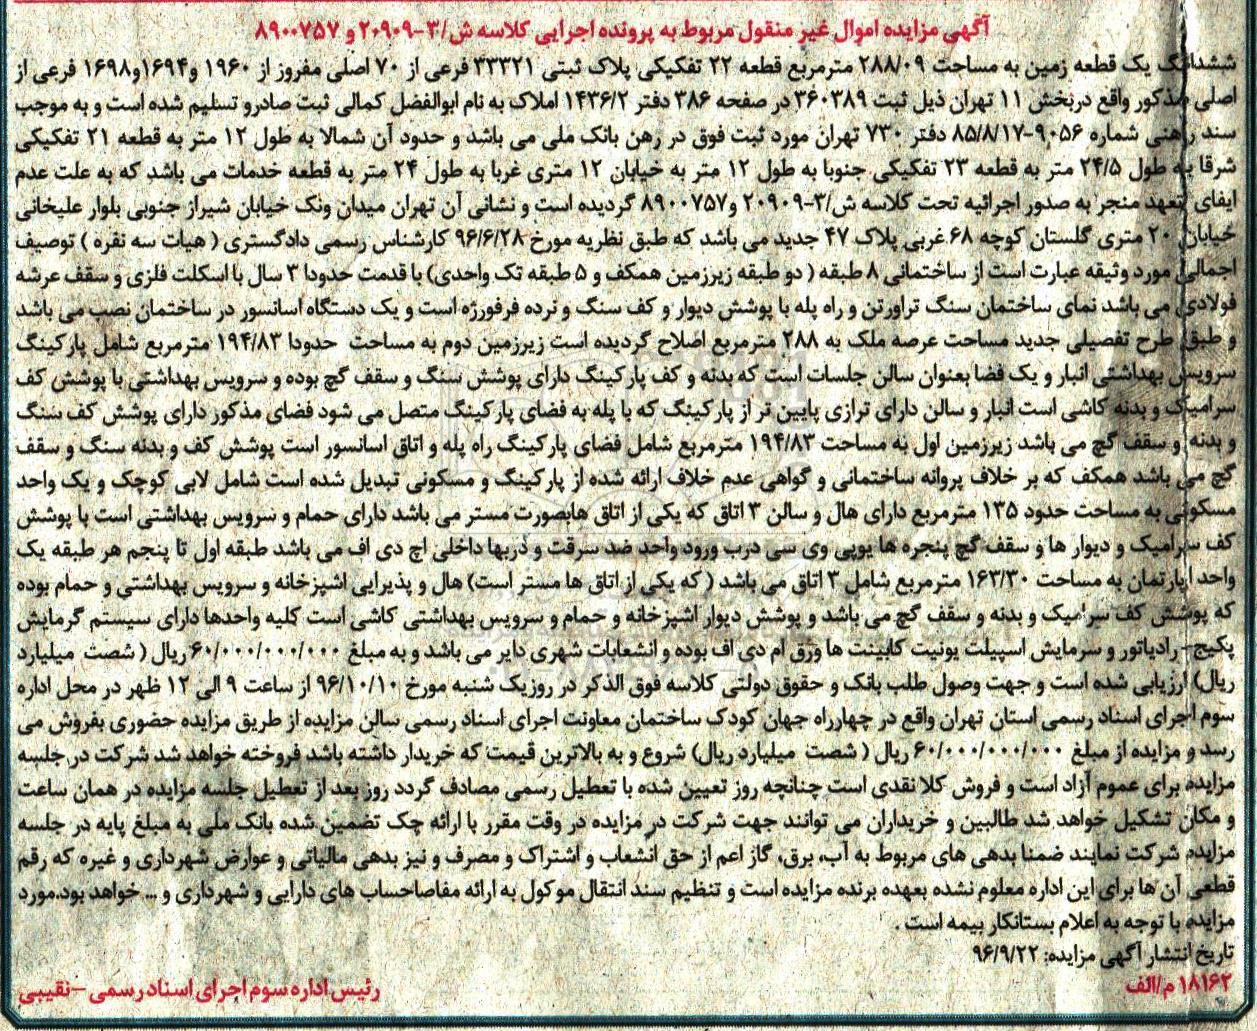 آگهی مزایده اموال غیر منقول مربوط به پرونده اجرایی کلاسه ش/۳-۲۰۹۰۹ و ۸۹۰۰۷۵۷
ششدانگ یک قطعه زمین به مساحت ۲۸۸/۰۹ مترمربع قطعه ۲۲ تفکیکی پلاک ثبتی ۳۳۳۲۱ فرعی از ۷۰ اصلی مفروز از ۱۹۶۰ و۱۶۹۴و۱۶۹۸ فرعی از
اصلی مذکور واقع دربخش ۱۱ تهران ذیل ثبت ۳۶۰۳۸۹ در صفحه ۳۸۶ دفتر ۱۴۳۶/۲ املاک به نام ابوالفضل کمالی ثبت صادرو تسلیم شده است و به موجب
سند رهنی شماره ۹۰۵۶-۸۵/۸/۱۷ دفتر ۷۳۰ تهران مورد ثبت فوق در رهن بانک ملی می باشد و حدود آن شمالا به طول ۱۲ متر به قطعه ۲۱ تفکیکی
شرقا به طول ۲۴/۵ متر به قطعه ۲۳ تفکیکی جنوبا به طول ۱۲ متر به خیابان ۱۲ متری غربا به طول ۲۴ متر به قطعه خدمات می باشد که به علت عدم
ایفای تعهد منجر به صدور اجرائیه تحت کلاسه ش/۳-۲۰۹۰۹ و۸۹۰۰۷۵۷ گردیده است و نشانی آن تهران میدان ونک خیابان شیراز جنوبی بلوار علیخانی
خیابان ۲۰ متری گلستان کوچه ۶۸ غربی پلاک ۴۷ جدید می باشد که طبق نظریه مورخ ۹۶/۶/۲۸ کارشناس رسمی دادگستری ( هیات سه نفره ) توصیف
اجمالی مورد وثیقه عبارت است از ساختمانی ۸ طبقه ( دو طبقه زیرزمین همکف و ۵ طبقه تک واحدی) با قدمت حدودا ۳ سال با اسکلت فلزی و سقف عرشه
فولادی می باشد نمای ساختمان سنگ تراورتن و راه پله با پوشش دیوار و کف سنگ و نرده فرفورژه است و یک دستگاه اسانسور در ساختمان نصب می باشد
و طبق طرح تفصیلی جدید مساحت عرصه ملک به ۲۸۸ مترمربع اصلاح گردیده است زیرزمین دوم به مساحت حدودا ۱۹۴/۸۳ مترمربع شامل پارکینگ
سرویس بهداشتی انبار و یک فضا بعنوان سالن جلسات است که بدنه و کف پارکینگ دارای پوشش سنگ و سقف گچ بوده و سرویس بهداشتی با پوشش کف
سرامیک و بدنه کاشی است انبار و سالن دارای ترازی پایین تر از پارکینگ که با پله به فضای پارکینگ متصل می شود فضای مذکور دارای پوشش کف سنگ
و بدنه و سقف گچ می باشد زیرزمین اول به مساحت ۱۹۴/۸۳ مترمربع شامل فضای پارکینگ راه پله و اتاق اسانسور است پوشش کف و بدنه سنگ و سقف
گچ می باشد همکف که بر خلاف پروانه ساختمانی و گواهی عدم خلاف ارائه شده از پارکینگ و مسکونی تبدیل شده است شامل لابی کوچک و یک واحد
مسکونی به مساحت حدود ۱۳۵ مترمربع دارای هال و سالن ۳ اتاق که یکی از اتاق هابصورت مستر می باشد دارای حمام و سرویس بهداشتی است با پوشش
کف سرامیک و دیوار ها و سقف گچ پنجره ها یوپی وی سی درب ورود واحد ضد سرقت و دربها داخلی اچ دی اف می باشد طبقه اول تا پنجم هر طبقه یک
واحد اپارتمان به مساحت ۱۶۳/۳۰ مترمربع شامل ۳ اتاق می باشد ( که یکی از اتاق ها مستر است) هال و پذیرایی اشپزخانه و سرویس بهداشتی و حمام بوده
که پوشش کف سرامیک و بدنه و سقف گچ می باشد و پوشش دیوار اشپزخانه و حمام و سرویس بهداشتی کاشی است کلیه واحدها دارای سیستم گرمایش
پکیج- رادیاتور و سرمایش اسپیلت یونیت کابینت ها ورق ام دی اف بوده و انشعابات شهری دایر می باشد و به مبلغ ۶۰/۰۰۰/۰۰۰/۰۰۰ ریال ( شصت میلیارد
ریال) ارزیابی شده است و جهت وصول طلب بانک و حقوق دولتی کلاسه فوق الذکر در روزیک شنبه مورخ ۹۶/۱۰/۱۰ از ساعت ۹ الی ۱۲ ظهر در محل اداره
سوم اجرای اسناد رسمی استان تهران واقع در چهارراه جهان کودک ساختمان معاونت اجرای اسناد رسمی سالن مزایده از طریق مزایده حضوری بفروش می
رسد و مزایده از مبلغ ۶۰/۰۰۰/۰۰۰/۰۰۰ ریال ( شصت میلیارد ریال) شروع و به بالاترین قیمت که خریدار داشته باشد فروخته خواهد شد شرکت در جلسه
مزایده برای عموم آزاد است و فروش کلا نقدی است چنانچه روز تعیین شده با تعطیل رسمی مصادف گردد روز بعد از تعطیل جلسه مزایده در همان ساعت
و مکان تشکیل خواهد شد طالبین و خریداران می توانند جهت شرکت در مزایده در وقت مقرر با ارائه چک تضمین شده بانک ملی به مبلغ پایه در جلسه
مزایده شرکت نمایند ضمنا بدهی های مربوط به آب، برق، گاز اعم از حق انشعاب و اشتراک و مصرف و نیز بدهی مالیاتی و عوارض شهرداری و غیره که رقم
قطعی آن ها برای این اداره معلوم نشده بعهده برنده مزایده است و تنظیم سند انتقال موکول به ارائه مفاصاحساب های دارایی و شهرداری و ... خواهد بود.مورد
مزایده با توجه به اعلام بستانکار بیمه است .
تاریخ انتشار آگهی مزایده: ۹۶/۹/۲۲
۱۸۱۶۲ م/الف
رئیس اداره سوم اجرای اسناد رسمی -نقیبی